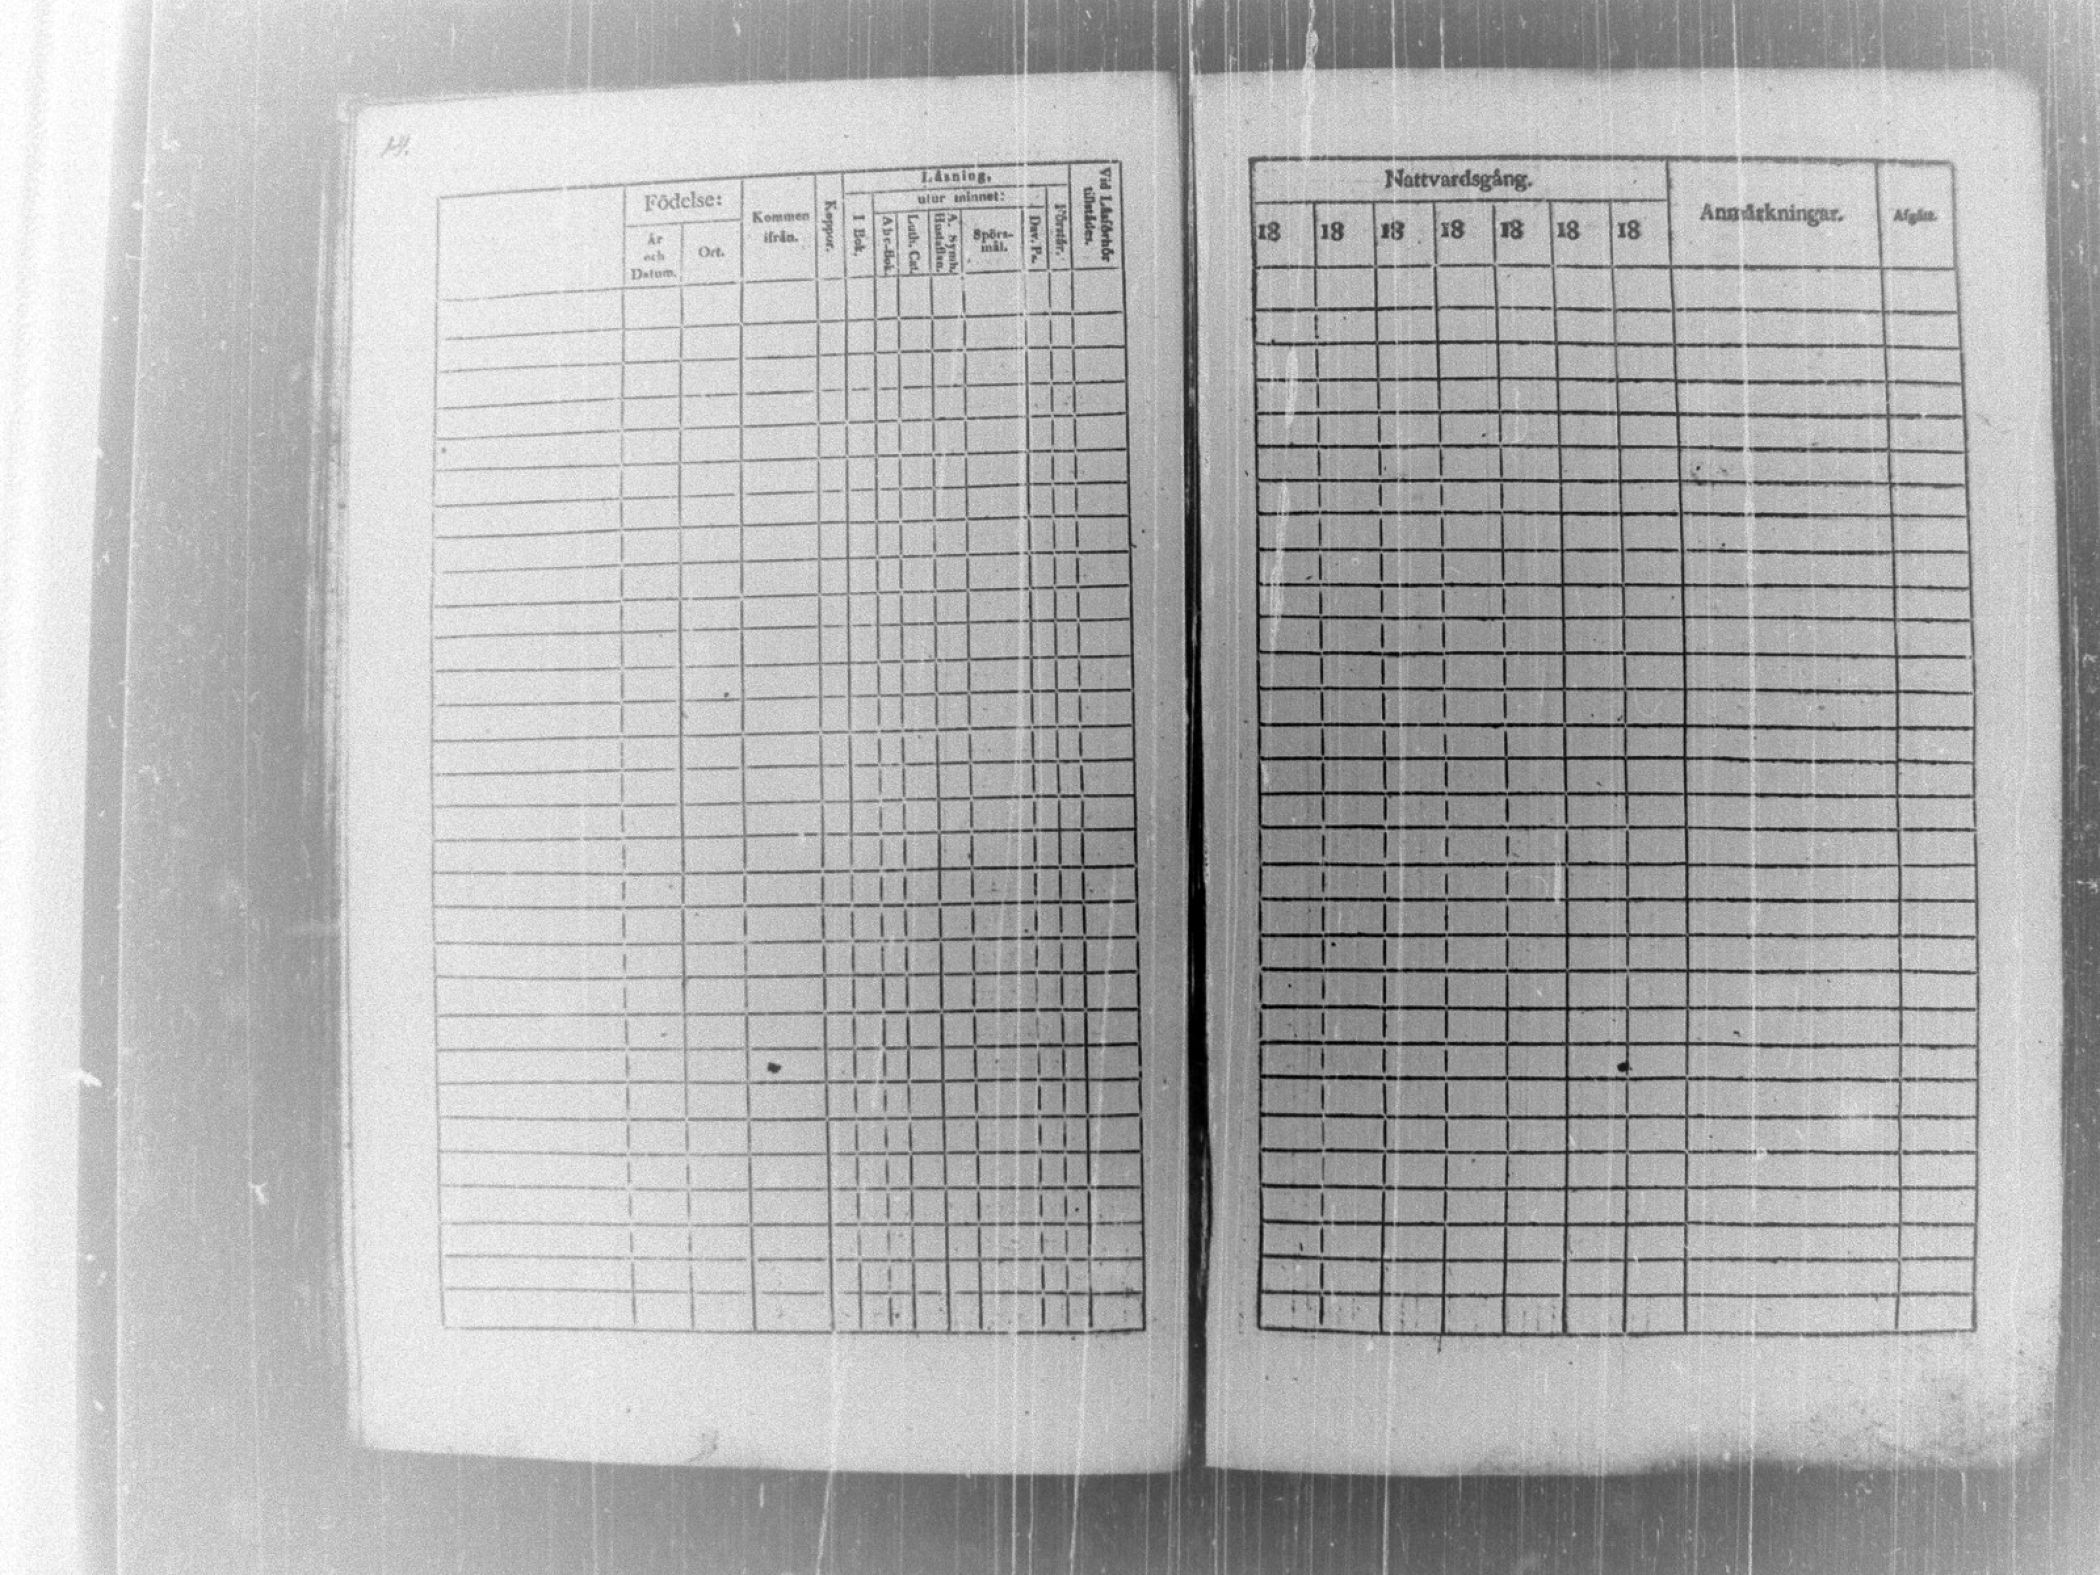 14.
Födelse:
År
och
Datum.
Ort.
Kommen
ifrån.
Koppor.
Läsning,
utur minnet:
I Bok.
Abc-Bok.
Luth. Cat.
A. Symb.
Hustaflan.
Spörs-
mål.
Dav. Ps.
Förstår.
Vid Läsförhör
tillstädes.
Nattvardsgång.
18 18 18 18 18 18 18
Anmärkningar.
Afgått.